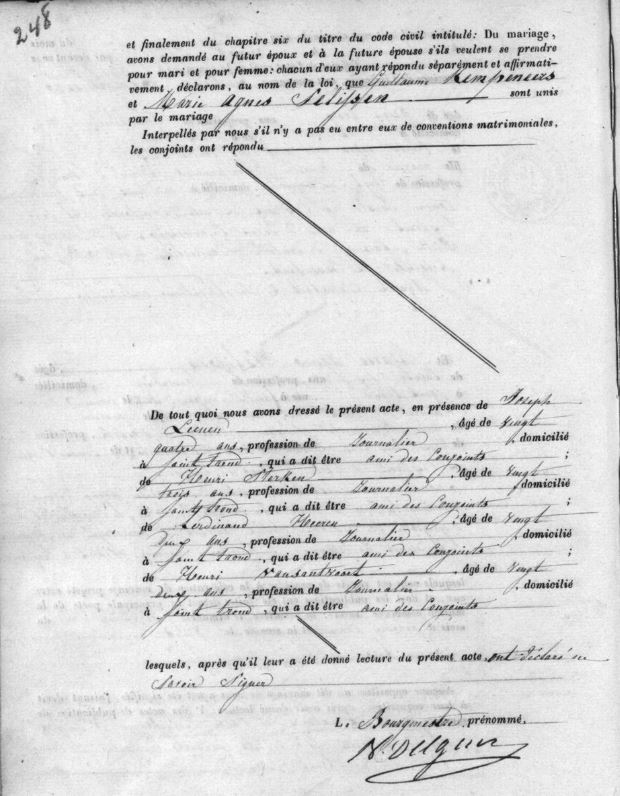 248
et finalement du chapitre six du titre du code civil intitulé: Du mariage,
avons demandé au futur époux et à la future épouse s'ils veulent se prendre
pour mari et pour femme: chacun d'eux ayant répondu séparément et affirmati-
vement, déclarons, au nom de la loi, que Guillaume Kempeneers
et Marie Agnes Selissen sont unis
par le mariage
Interpellés par nous s'il n'y a pas eu entre eux de conventions matrimoniales,
les conjoints ont répondu
De tout quoi nous avons dressé le présent acte, en présence de Joseph
Leenen, âgé de vingt
quatre ans, profession de Journalier, domicilié
à Saint Trond, qui a dit être ami des Conjoints ;
de Henri Sterken, âgé de vingt
trois ans, profession de Journalier, domicilié
à Saint Trond, qui a dit être ami des Conjoints ;
de Ferdinand Heeren, âgé de vingt
deux ans, profession de Journalier, domicilié
à Saint Trond, qui a dit être ami des Conjoints ;
de Henri Vansantvoort, âgé de vingt
deux ans, profession de Journalier, domicilié
à Saint Trond, qui a dit être ami des Conjoints
lesquels, après qu'il leur a été donné lecture du présent acte, ont déclaré ne
savoir Signer
L. Bourgmestre prénommé.